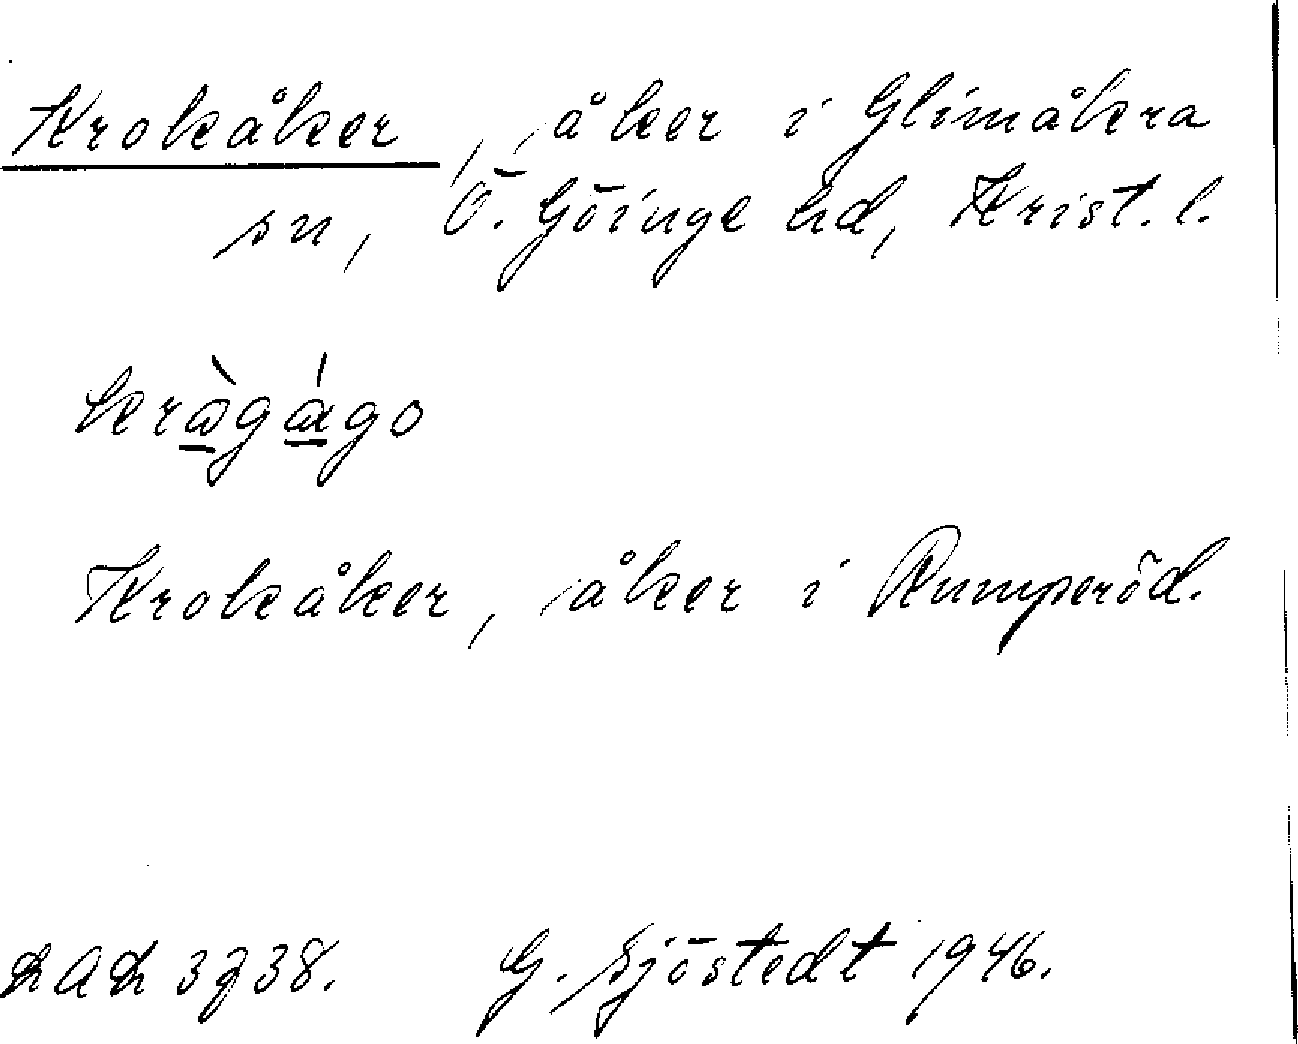 Krokåker, åker i Glimåkra
sn, Ö. Göinge hd, Krist. l.
kràgágo
Krokåker, åker i Rumperöd.
LAL 3738. G. Sjöstedt 1946.